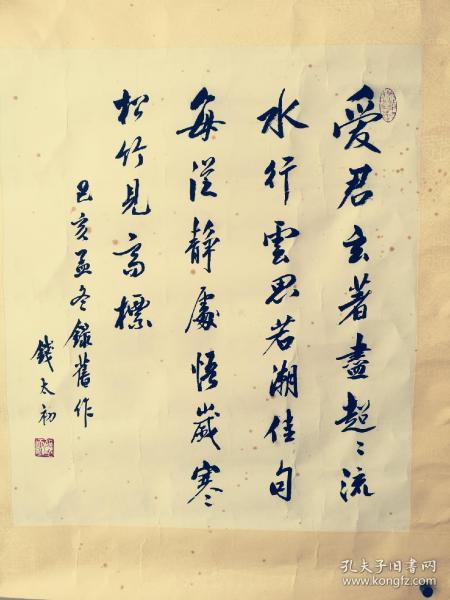 愛君玄著盡超々流
水行雲思若潮佳句
每從靜處悟歲寒
松竹見高標
己亥孟冬錄舊作
錢太初
孔夫子旧书网
www.kongfz.com